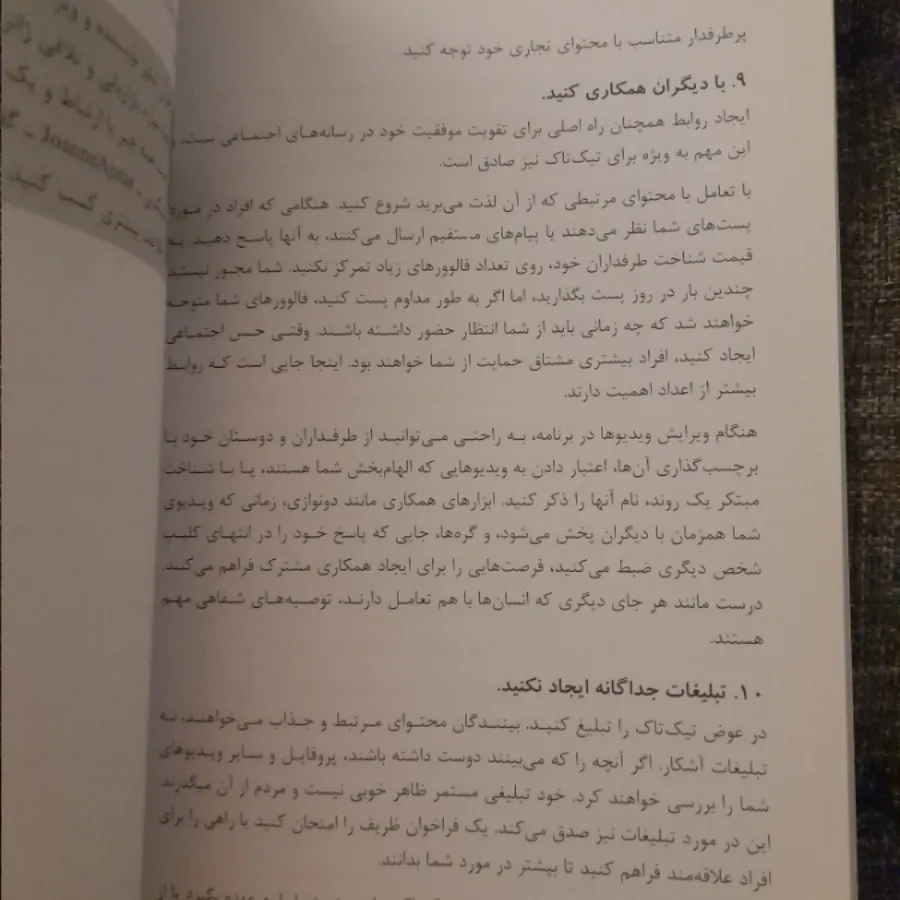 پرطرفدار متناسب با محتوای تجاری خود توجه کنید.
۹. با دیگران همکاری کنید.
ایجاد روابط همچنان راه اصلی برای تقویت موفقیت خود در رسانه‌های اجتماعی ست، و
این مهم به ویژه برای تیک‌تاک نیز صادق است.
با تعامل با محتوای مرتبطی که از آن لذت می‌برید شروع کنید. هنگامی که افراد در مورد
پست‌های شما نظر می‌دهند یا پیام‌های مستقیم ارسال می‌کنند، به آنها پاسخ دهید. به
قیمت شناخت طرفداران خود، روی تعداد فالوورهای زیاد تمرکز نکنید. شما مجبور نیستید
چندین بار در روز پست بگذارید، اما اگر به طور مداوم پست کنید، فالوورهای شما متوجه
خواهند شد که چه زمانی باید از شما انتظار حضور داشته باشند. وقتی حس اجتماعی
ایجاد کنید، افراد بیشتری مشتاق حمایت از شما خواهند بود. اینجا جایی است که روابط
بیشتر از اعداد اهمیت دارند.
هنگام ویرایش ویدیوها در برنامه، به راحتی می‌توانید از طرفداران و دوستان خود با
برچسب‌گذاری آن‌ها، اعتبار دادن به ویدیوهایی که الهام‌بخش شما هستند، یا با شناخت
مبتکر یک روند، نام آنها را ذکر کنید. ابزارهای همکاری مانند دونوازی، زمانی که ویدیوی
شما همزمان با دیگران پخش می‌شود، و گره‌ها، جایی که پاسخ خود را در انتهای کلیپ
شخص دیگری ضبط می‌کنید، فرصت‌هایی را برای ایجاد همکاری مشترک فراهم می‌کنند.
درست مانند هر جای دیگری که انسان‌ها با هم تعامل دارند، توصیه‌های شفاهی مهم
هستند.
۱۰. تبلیغات جداگانه ایجاد نکنید.
در عوض تیک‌تاک را تبلیغ کنید. بینندگان محتوای مرتبط و جذاب می‌خواهند، نه
تبلیغات آشکار. اگر آنچه را که می‌بینند دوست داشته باشند، پروفایل و سایر ویدیوهای
شما را بررسی خواهند کرد. خود تبلیغی مستمر ظاهر خوبی نیست و مردم از آن میگذرند.
این در مورد تبلیغات نیز صدق می‌کند. یک فراخوان ظریف را امتحان کنید یا راهی را برای
افراد علاقه‌مند فراهم کنید تا بیشتر در مورد شما بدانند.